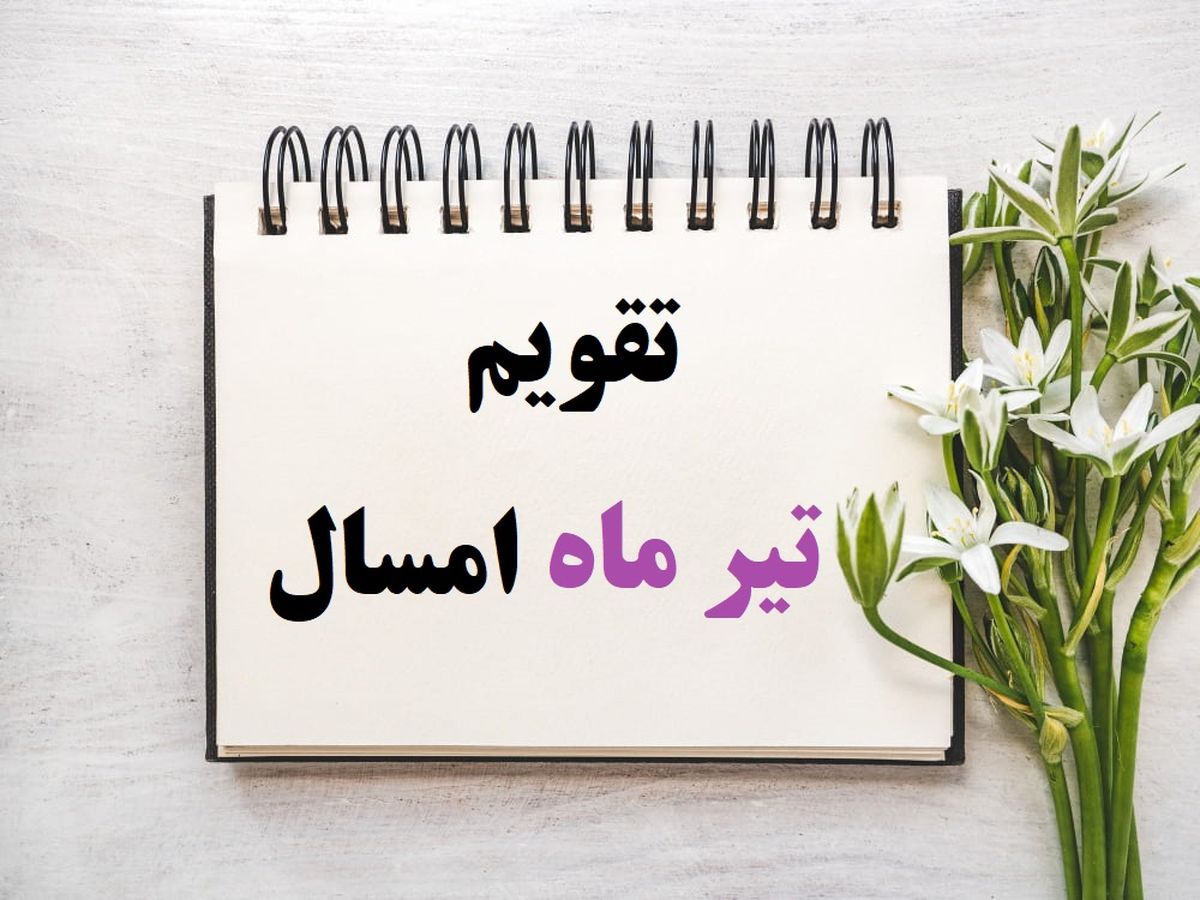 تقویم
تیر ماه امسال